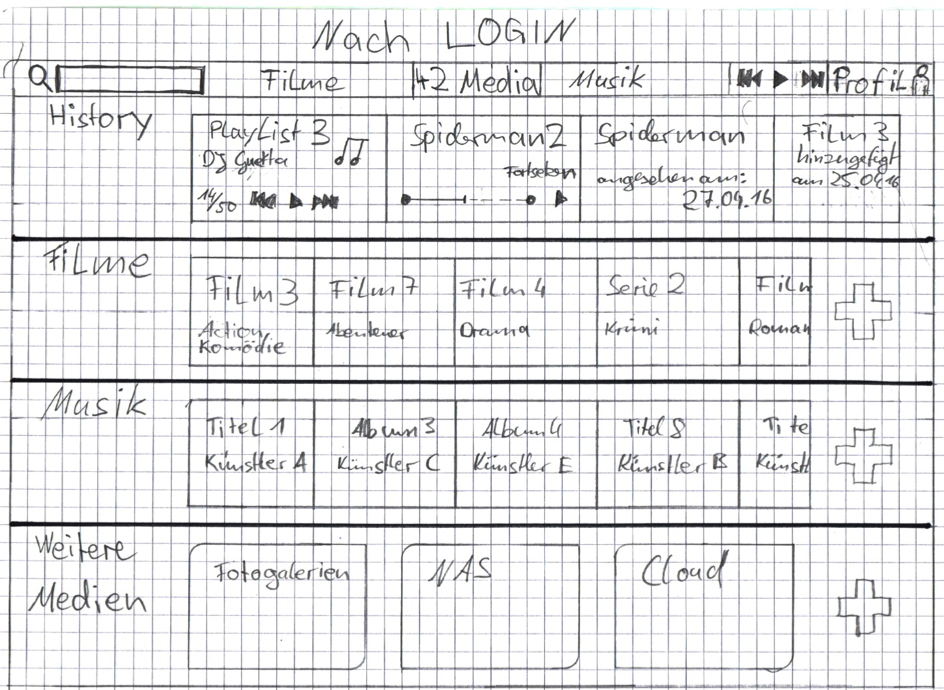 Nach LOGIN
Filme 42 Media Musik Profil
History
Playlist 3
DJ Guetta
14/50
Spiderman 2
Fortsetzen
Spiderman
angesehen am:
27.04.16
Film 3
hinzugefügt
am 25.04.16
Filme
Film 3
Action,
Komödie
Film 7
Abenteuer
Film 4
Drama
Serie 2
Krimi
Film
Roman
Musik
Titel 1
Künstler A
Album 3
Künstler C
Album 4
Künstler E
Titel 8
Künstler B
Tite
Künstl
Weitere
Medien
Fotogalerien
NAS
Cloud